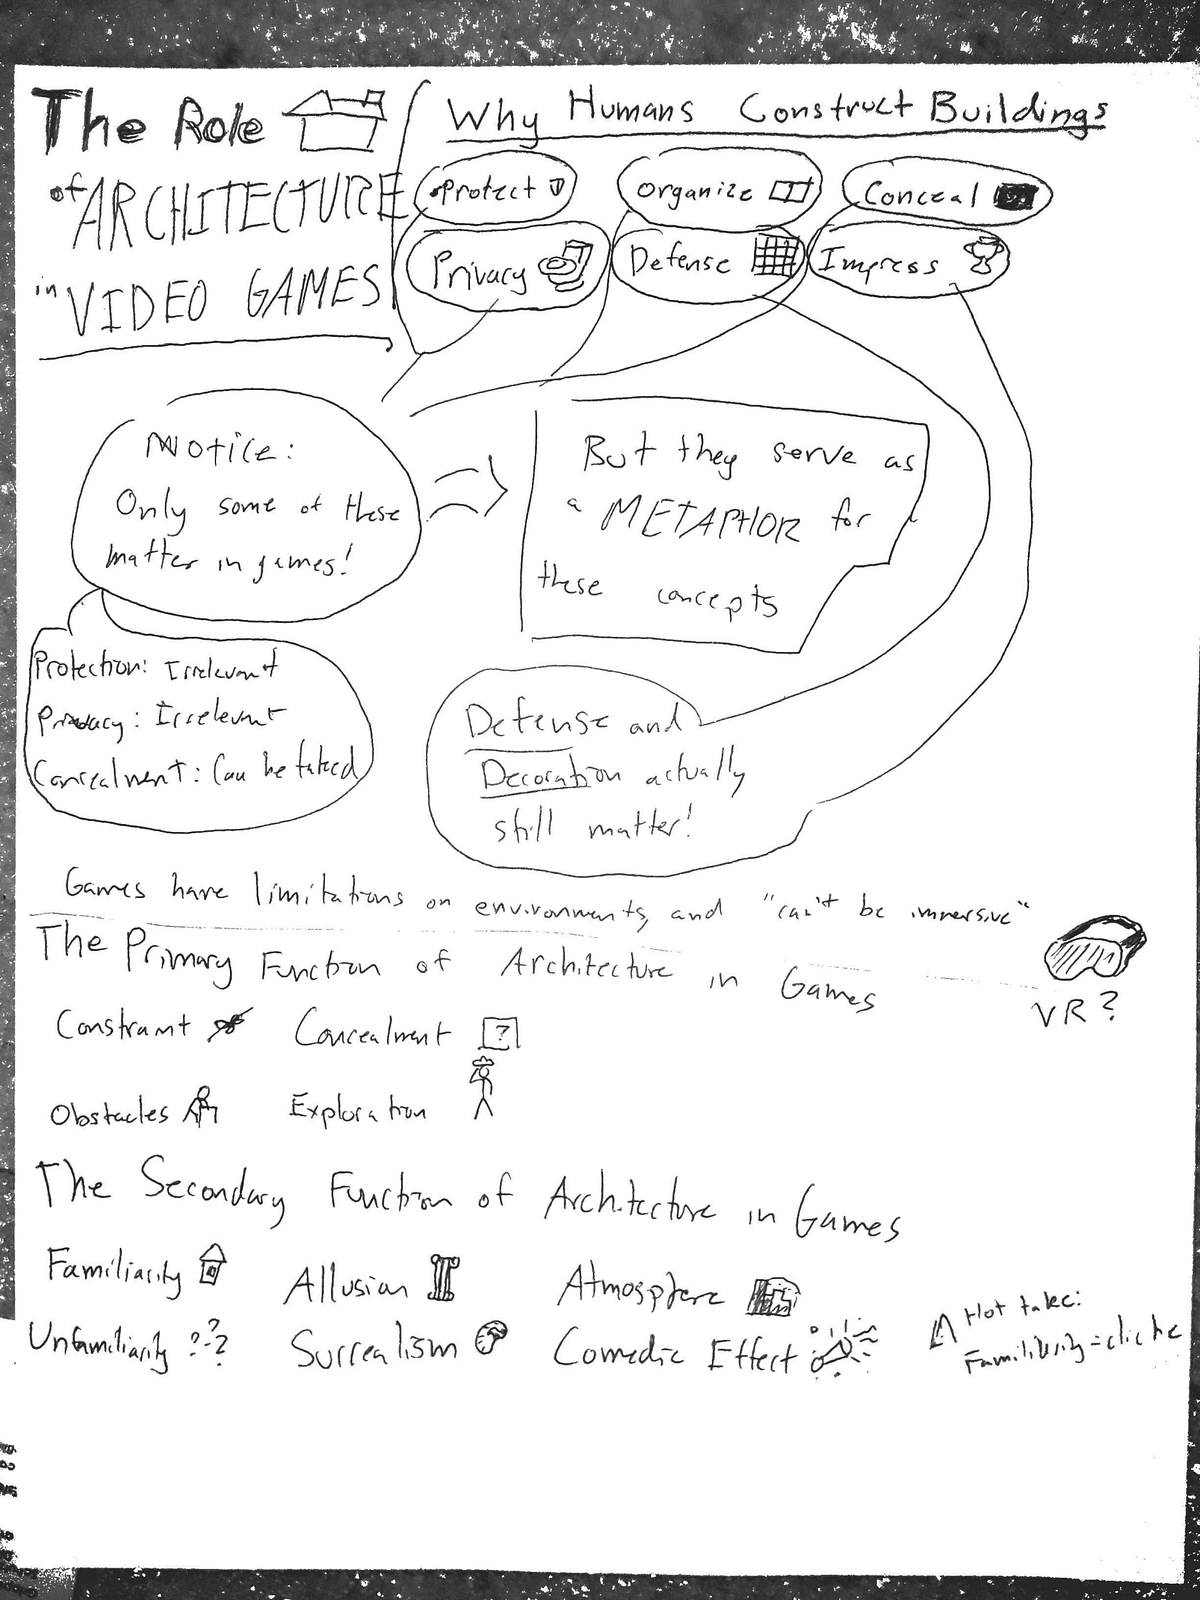 The Role
of ARCHITECTURE
in VIDEO GAMES
Why Humans Construct Buildings
Protect
Organize
Conceal
Privacy
Defense
Impress
Notice:
Only some of these
matter in games!
But they serve as
a METAPHOR for
these concepts
Protection: Irrelevant
Privacy: Irrelevant
Concealment: Can be faked
Defense and
Decoration actually
still matter!
Games have limitations on environments, and "can't be immersive"
VR?
The Primary Function of Architecture in Games
Constraint
Concealment
?
Obstacles
Exploration
The Secondary Function of Architecture in Games
Familiarity
Allusion
Atmosphere
Unfamiliarity ???
Surrealism
Comedic Effect
Hot take:
Familiarity = cliche